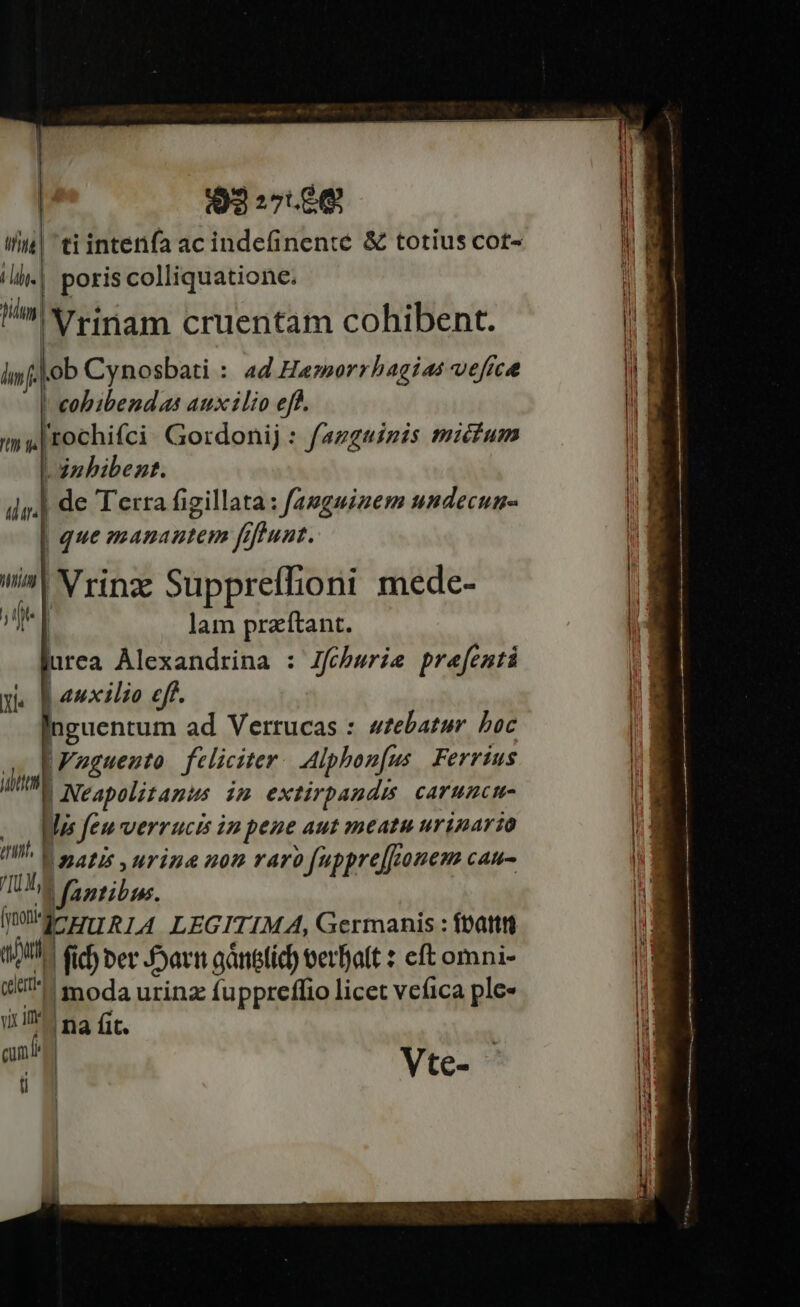 271
ti intenſa ac indeſinente & totius cor-
poris colliquatione.
Vrinam cruentam cohibent.
lob Cynosbati : ad Hæmorrhagias veſicæ
cohibendas auxilio eſt.
rochiſci Gordonij : ſanguinis mictum
inhibent.
de Terra ſigillata : ſanguinem undecun-
que manantem ſiſtunt.
Vrinæ Suppreſſioni mede-
lam præſtant.
urea Alexandrina : Iſchuriæ præſenti
auxilio eſt.
nguentum ad Verrucas : utebatur hoc
Vnguento feliciter Alphonſus Ferrius
Neapolitanus in extirpandis caruncu-
lis ſeu verrucis in pene aut meatu urinario
natis, urinæ non rarò ſuppreſſionem cau-
ſantibus.
ICHURIA LEGITIMA, Germanis : wann
ſich der Harn gäntzlich verhalt : eſt omni-
moda urinæ ſuppreſſio licet veſica ple-
na ſit.
Vte-